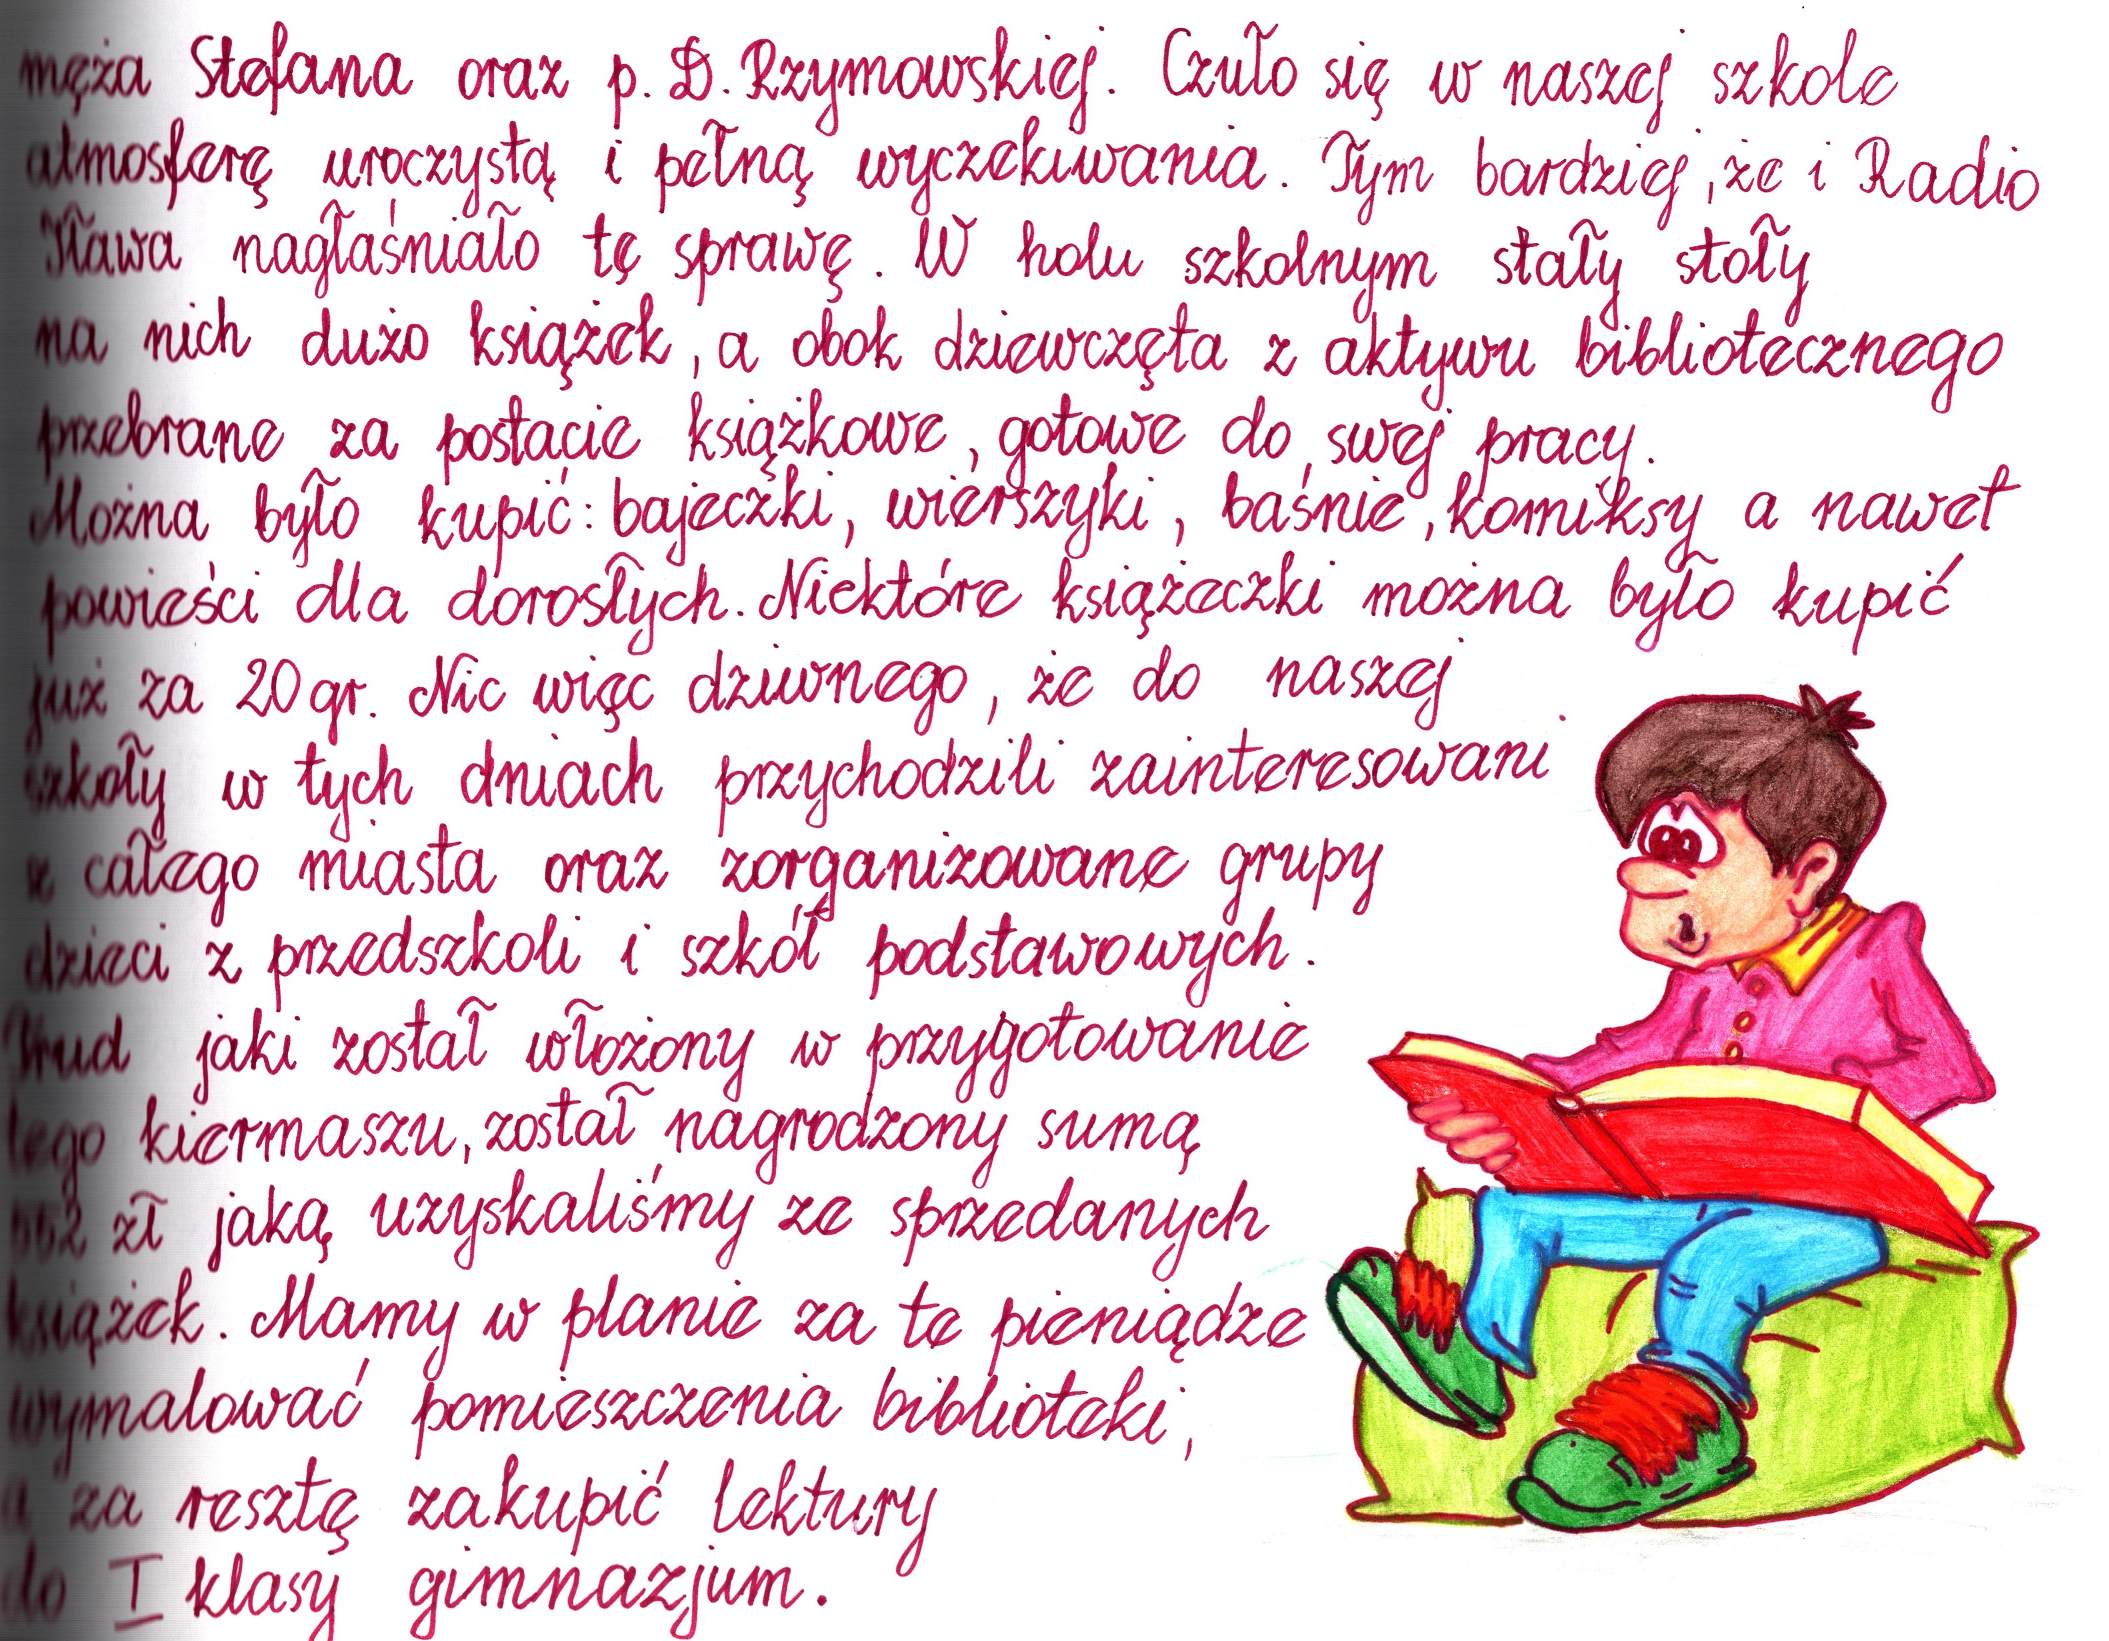 męża Stefana oraz p. D. Rzymowskiej. Czuło się w naszej szkole
atmosferę uroczystą i pełną wyczekiwania. Tym bardziej, że i Radio
Iława nagłaśniało tę sprawę. W holu szkolnym stały stoły
na nich dużo książek, a obok dziewczęta z aktywu bibliotecznego
przebrane za postacie książkowe, gotowe do swej pracy.
Można było kupić: bajeczki, wierszyki, baśnie, komiksy a nawet
powieści dla dorosłych. Niektóre książeczki można było kupić
już za 20 gr. Nic więc dziwnego, że do naszej
szkoły w tych dniach przychodzili zainteresowani
z całego miasta oraz zorganizowane grupy
dzieci z przedszkoli i szkół podstawowych.
Trud jaki został włożony w przygotowanie
tego kiermaszu, został nagrodzony sumą
552 zł jaką uzyskaliśmy ze sprzedanych
książek. Mamy w planie za te pieniądze
wymalować pomieszczenia biblioteki,
a za resztę zakupić lektury
do I klasy gimnazjum.